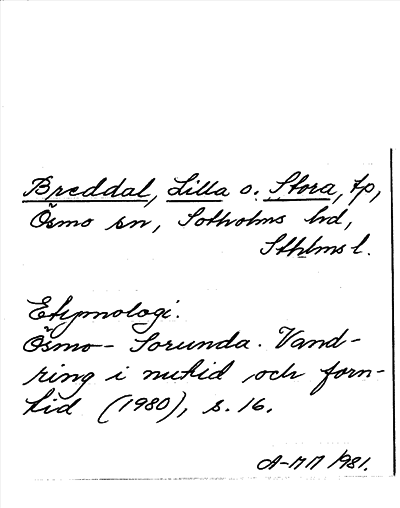 Breddal, Lilla o. Stora, tp,
Ösmo sn, Sotholms hd,
Sthlms l.
Etymologi.
Ösmo - Sorunda. Vand-
ring i nutid och forn-
tid (1980), s. 16.
A-MM 1981.